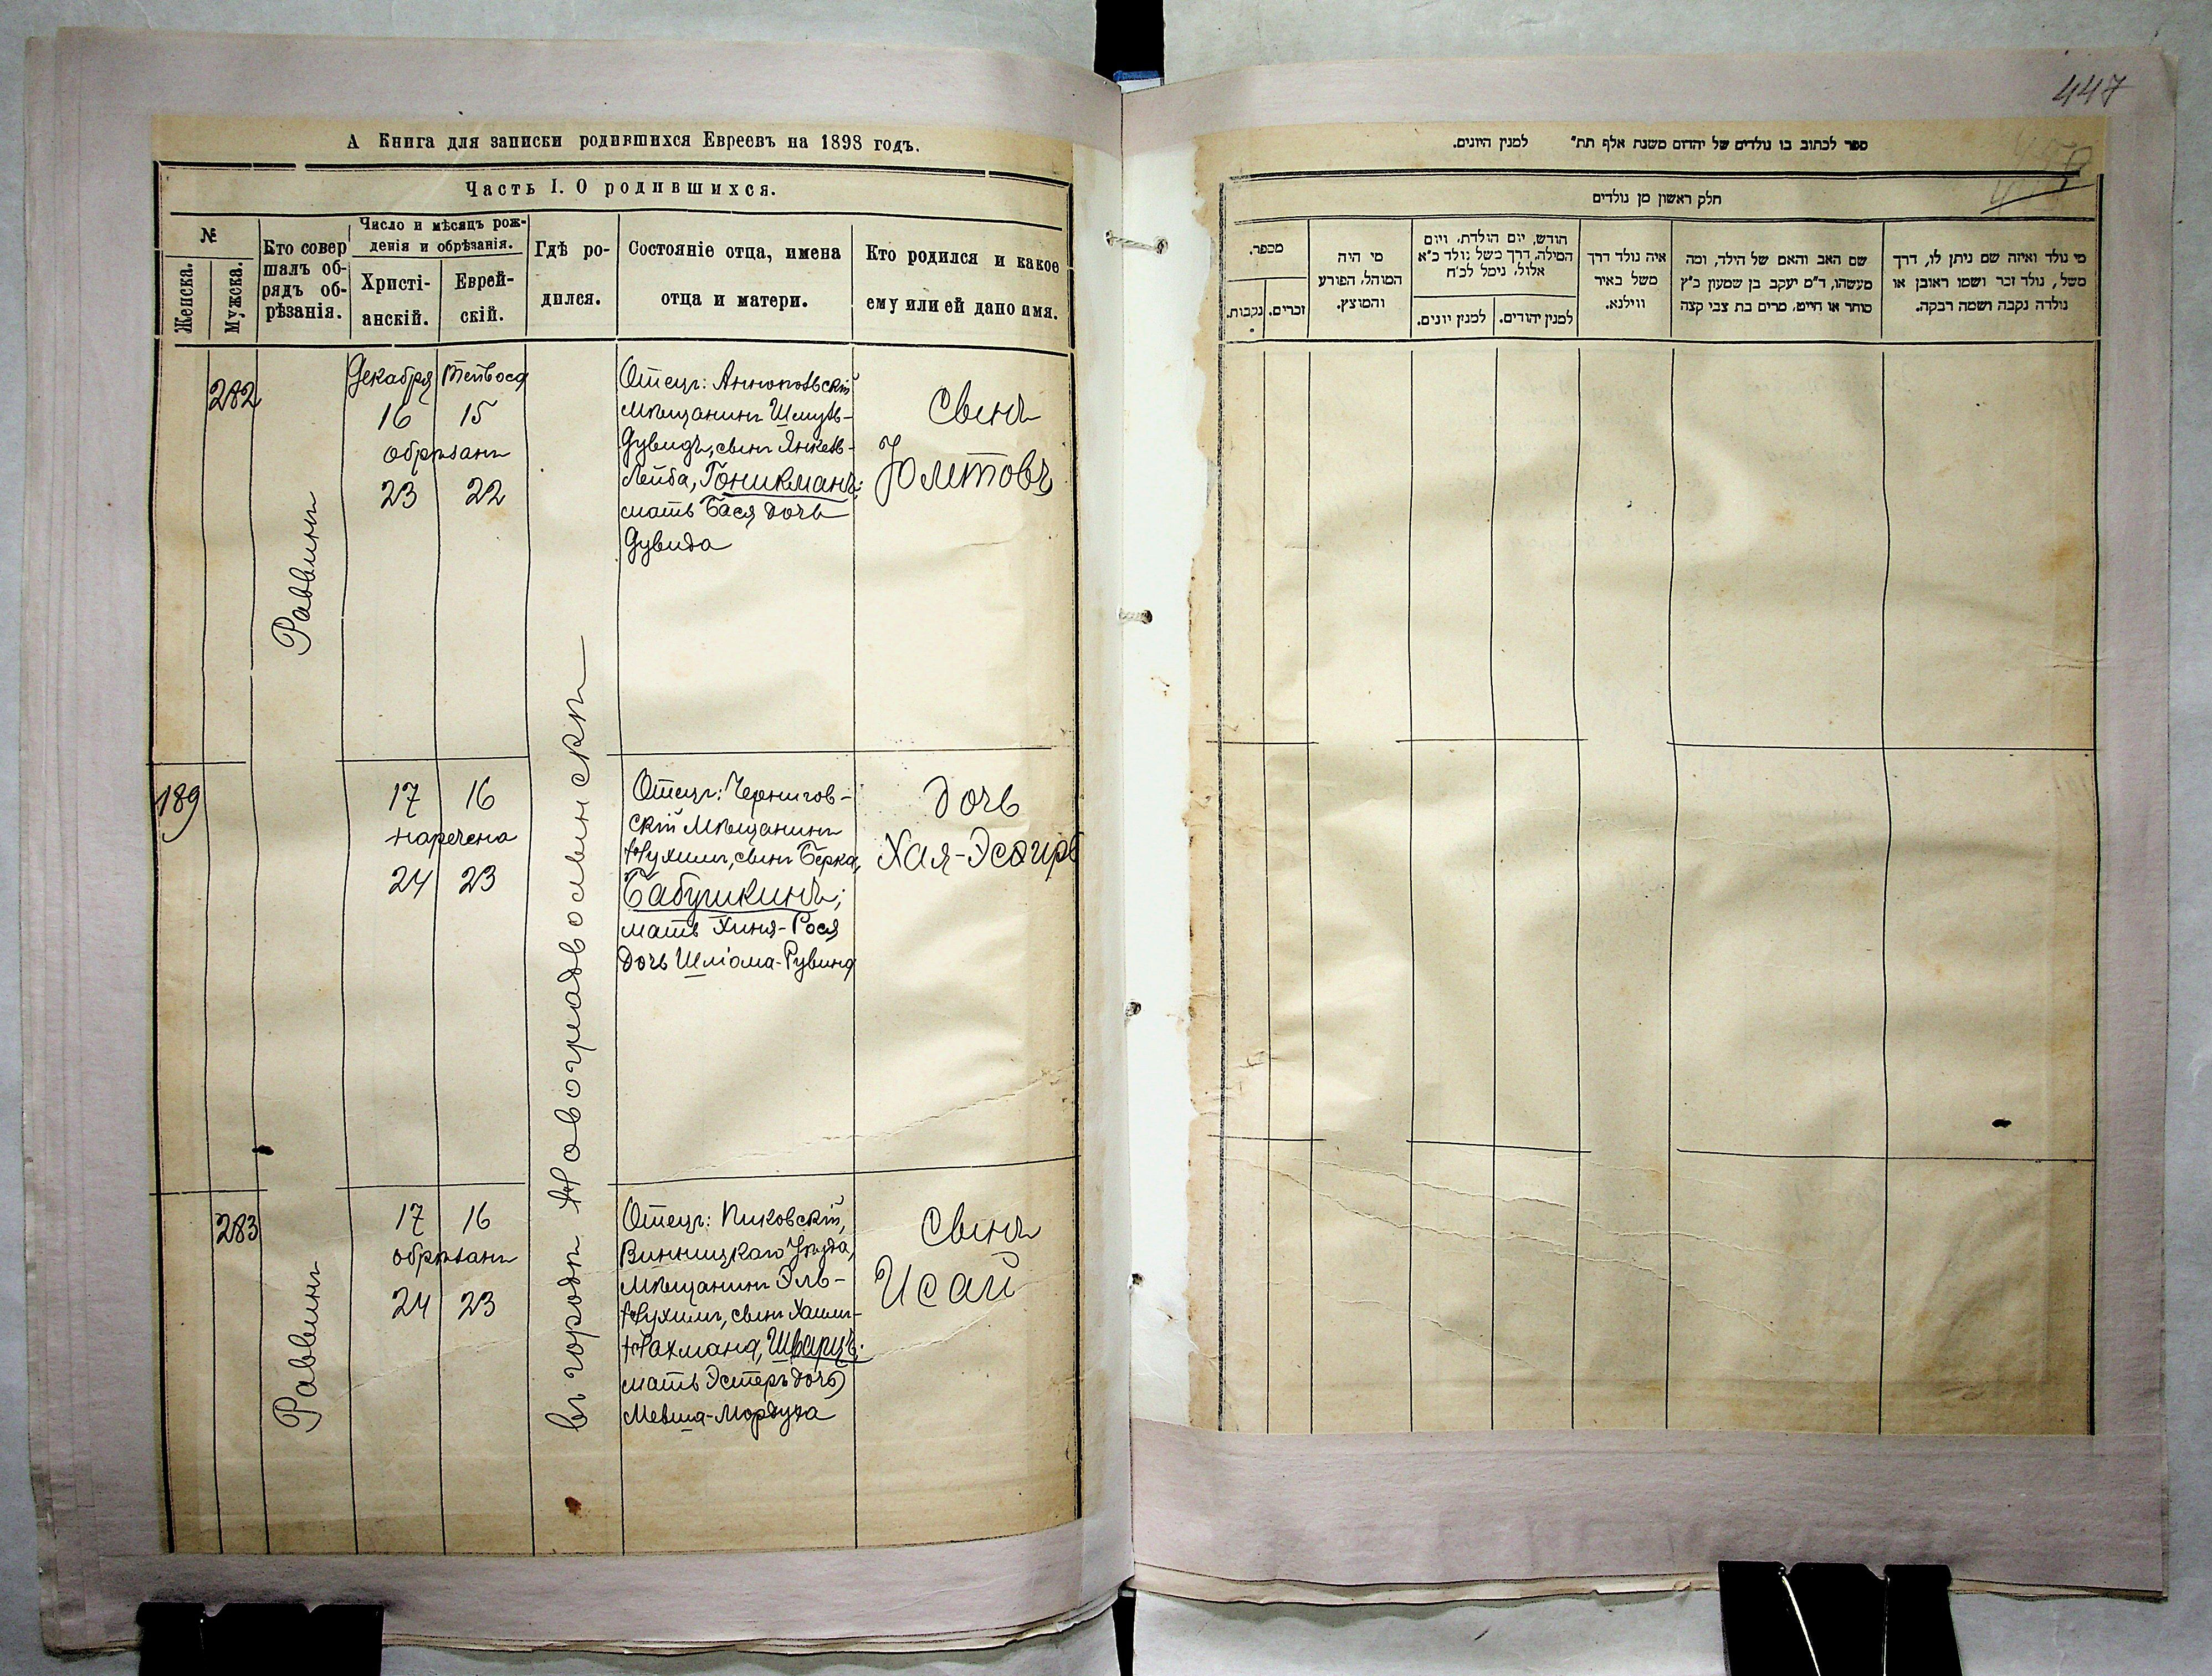 447
А Книга для записки родившихся Евреевъ на 1898 годъ.
Часть I. О родившихся.
№
Женска.
Мужска.
Кто совер
шалъ об-
рядъ об-
рѣзанія.
Число и мѣсяцъ рож-
денія и обрѣзанія.
Христі-
анскій.
Еврей-
скій.
Гдѣ ро-
дился.
Состояніе отца, имена
отца и матери.
Кто родился и какое
ему или ей дано имя.
282
Раввинъ
Декабря
16 15
обрѣзанъ
23 22
въ городѣ Новоградволынскѣ
Отецъ: Аннопольскій
мѣщанинъ Шмуль-
Дувидъ, сынъ Янкель-
Лейба, Гоникманъ;
мать Бася дочь
Дувида
Сынъ
Юмтовъ
189
17 16
наречена
24 23
Отецъ: Чернигов-
скій мѣщанинъ
Нухимъ, сынъ Берка,
Бабушкинъ;
мать Хиня-Рося
дочь Шліома-Рувина
Дочь
Хая-Эсѳирь
283
Раввинъ
17 16
обрѣзанъ
24 23
Отецъ: Пиковскій,
Винницкаго Уѣзда,
мѣщанинъ Эль-
Нухимъ, сынъ Хаимъ-
Нахмана, Шварцъ;
мать Эстеръ дочь
Мевша-Мордуха
Сынъ
Исай
ספר לכתוב בו נולדים של יהדום משנת אלף תת״ למנין היונים.
חלק ראשון מן נולדים
מי נולד ואיזה שם ניתן לו, דרך
משל, נולד זכר ושמו ראובן או
נולדה נקבה ושמה רבקה.
שם האב והאם של הילד, ומה
מעשהו, ד״מ יעקב בן שמעון כ״ץ
סוחר או חייט, מרים בת צבי קצה
איה נולד דרך
משל באיר
ווילנא.
חודש, יום הולדת, ויום
המילה, דרך משל נולד כ״א
אלול, נימל לכ״ח
למנין יהודים.
למנין יונים.
מי היה
המוהל, הפורע
והמוצץ.
מספר.
זכרים.
נקבות.